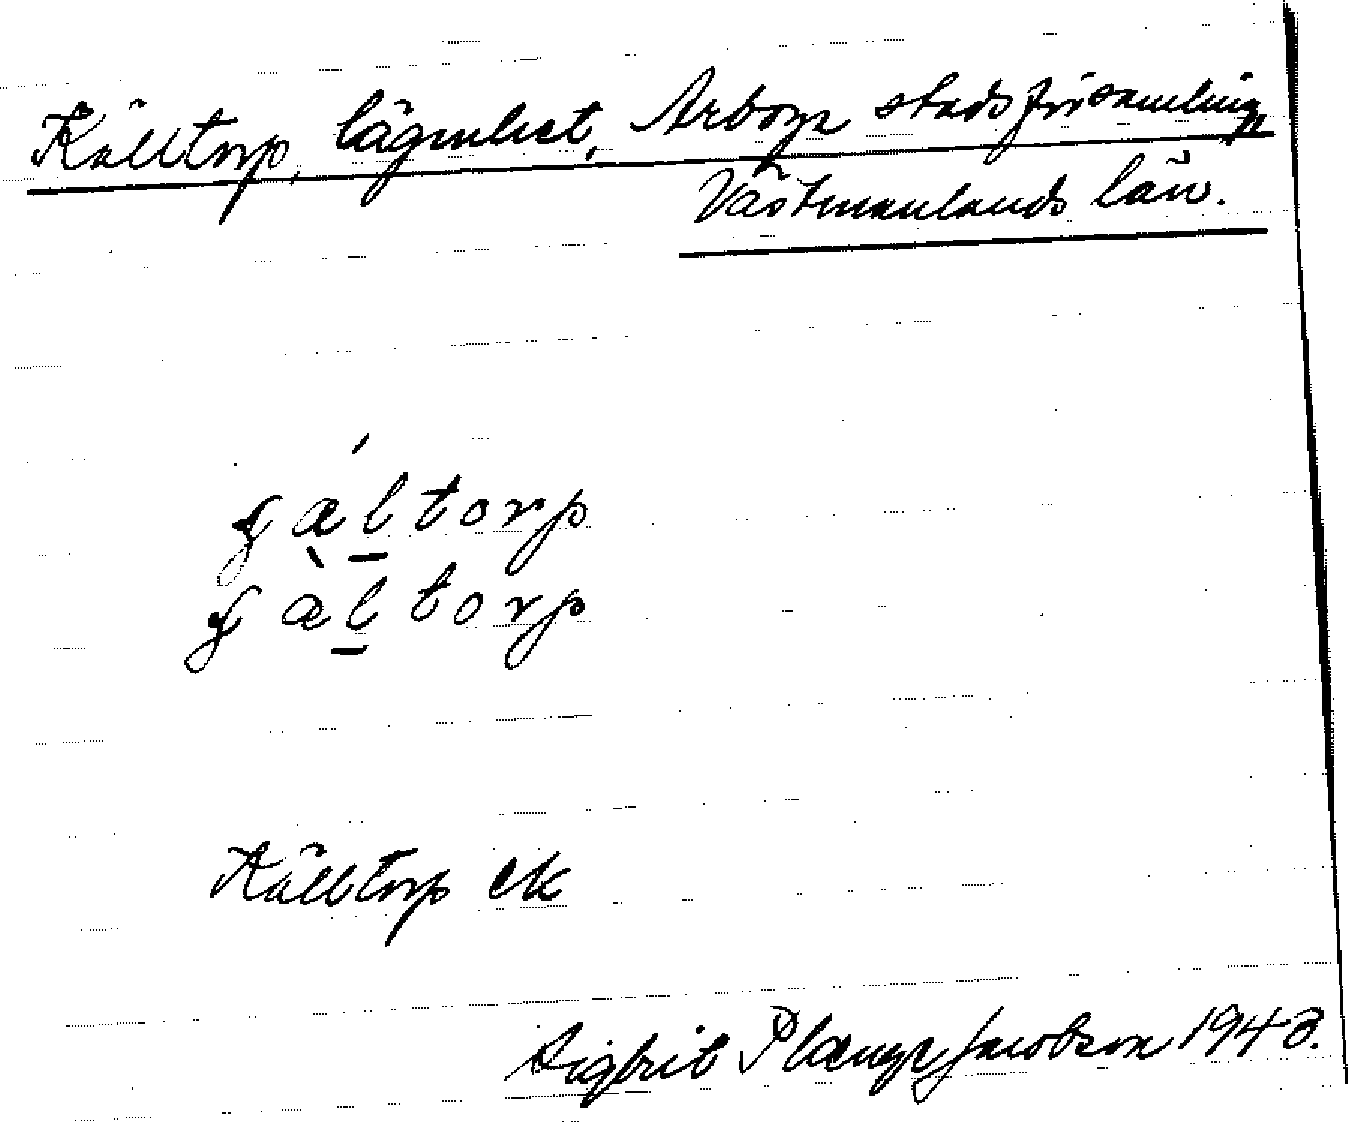 Källtorp, lägenhet, Arboga stadsförsamling
Västmanlands län.
ɕæ̀ḻtorp
ɕæ̀ḻtorp
Källtorp ek
Sigbrit Plænge Jacobson 1943.